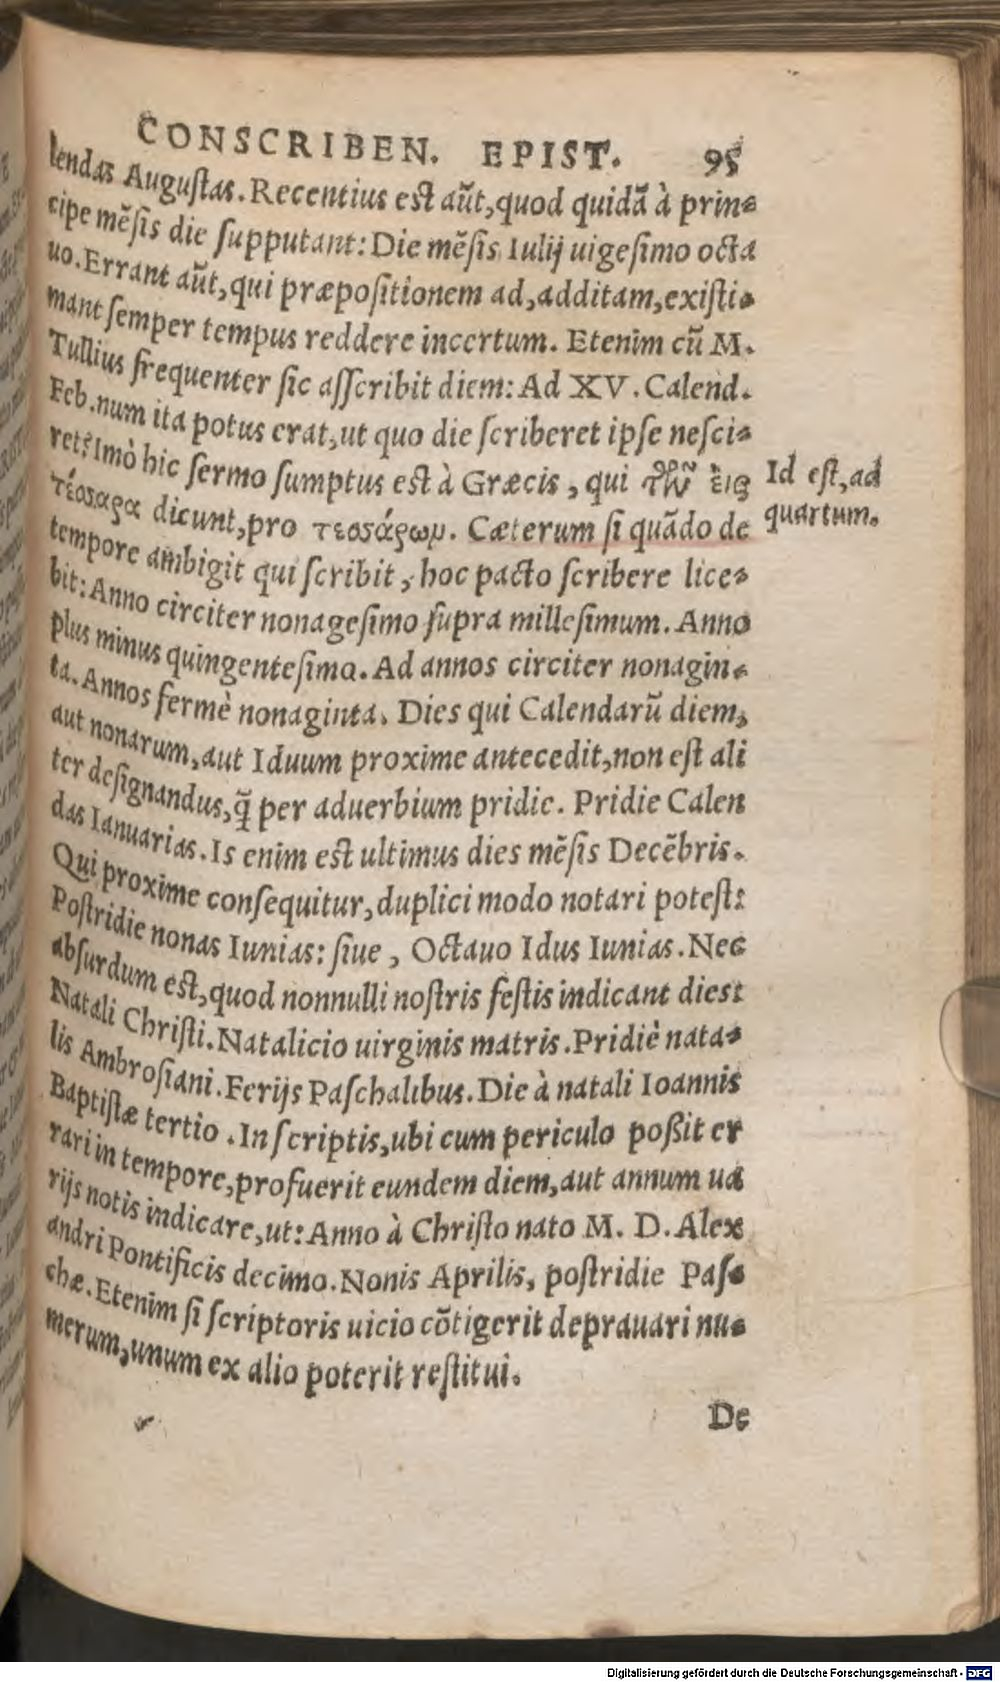 CONSCRIBEN. EPIST. 95
lendas Auguſtas. Recentius eſt aũt, quod quidã à prin-
cipe mẽſis die ſupputant: Die mẽſis Iulij uigeſimo octa
uo. Errant aũt, qui præpoſitionem ad, additam, exiſti-
mant ſemper tempus reddere incertum. Etenim cũ M.
Tullius frequenter ſic aſſcribit diem: Ad XV. Calend.
Feb. num ita potus erat, ut quo die ſcriberet ipſe neſci-
ret? Imò hic ſermo ſumptus eſt à Græcis, qui εἰς
τέσσαρα dicunt, pro τεσσάρωμ. Cæterum ſi quãdo de
tempore ambigit qui ſcribit, hoc pacto ſcribere lice-
bit: Anno circiter nonageſimo ſupra milleſimum. Anno
plus minus quingenteſimo. Ad annos circiter nonagin-
ta. Annos fermè nonaginta. Dies qui Calendarũ diem,
aut nonarum, aut Iduum proxime antecedit, non eſt ali
ter deſignandus, q̃ per aduerbium pridie. Pridie Calen
das Ianuarias. Is enim eſt ultimus dies mẽſis Decẽbris.
Qui proxime conſequitur, duplici modo notari poteſt:
Poſtridie nonas Iunias: ſiue, Octauo Idus Iunias. Nec
abſurdum eſt, quod nonnulli noſtris feſtis indicant dies:
Natali Chriſti. Natalicio uirginis matris. Pridiè nata-
lis Ambroſiani. Ferijs Paſchalibus. Die à natali Ioannis
Baptiſtæ tertio. In ſcriptis, ubi cum periculo poßit er
rari in tempore, profuerit eundem diem, aut annum ua
rijs notis indicare, ut: Anno à Chriſto nato M. D. Alex
andri Pontificis decimo. Nonis Aprilis, poſtridie Paſ-
chæ. Etenim ſi ſcriptoris uicio cõtigerit deprauari nu-
merum, unum ex alio poterit reſtitui.
De
Id eſt, ad
quartum.
Digitalisierung gefördert durch die Deutsche Forschungsgemeinschaft - DFG